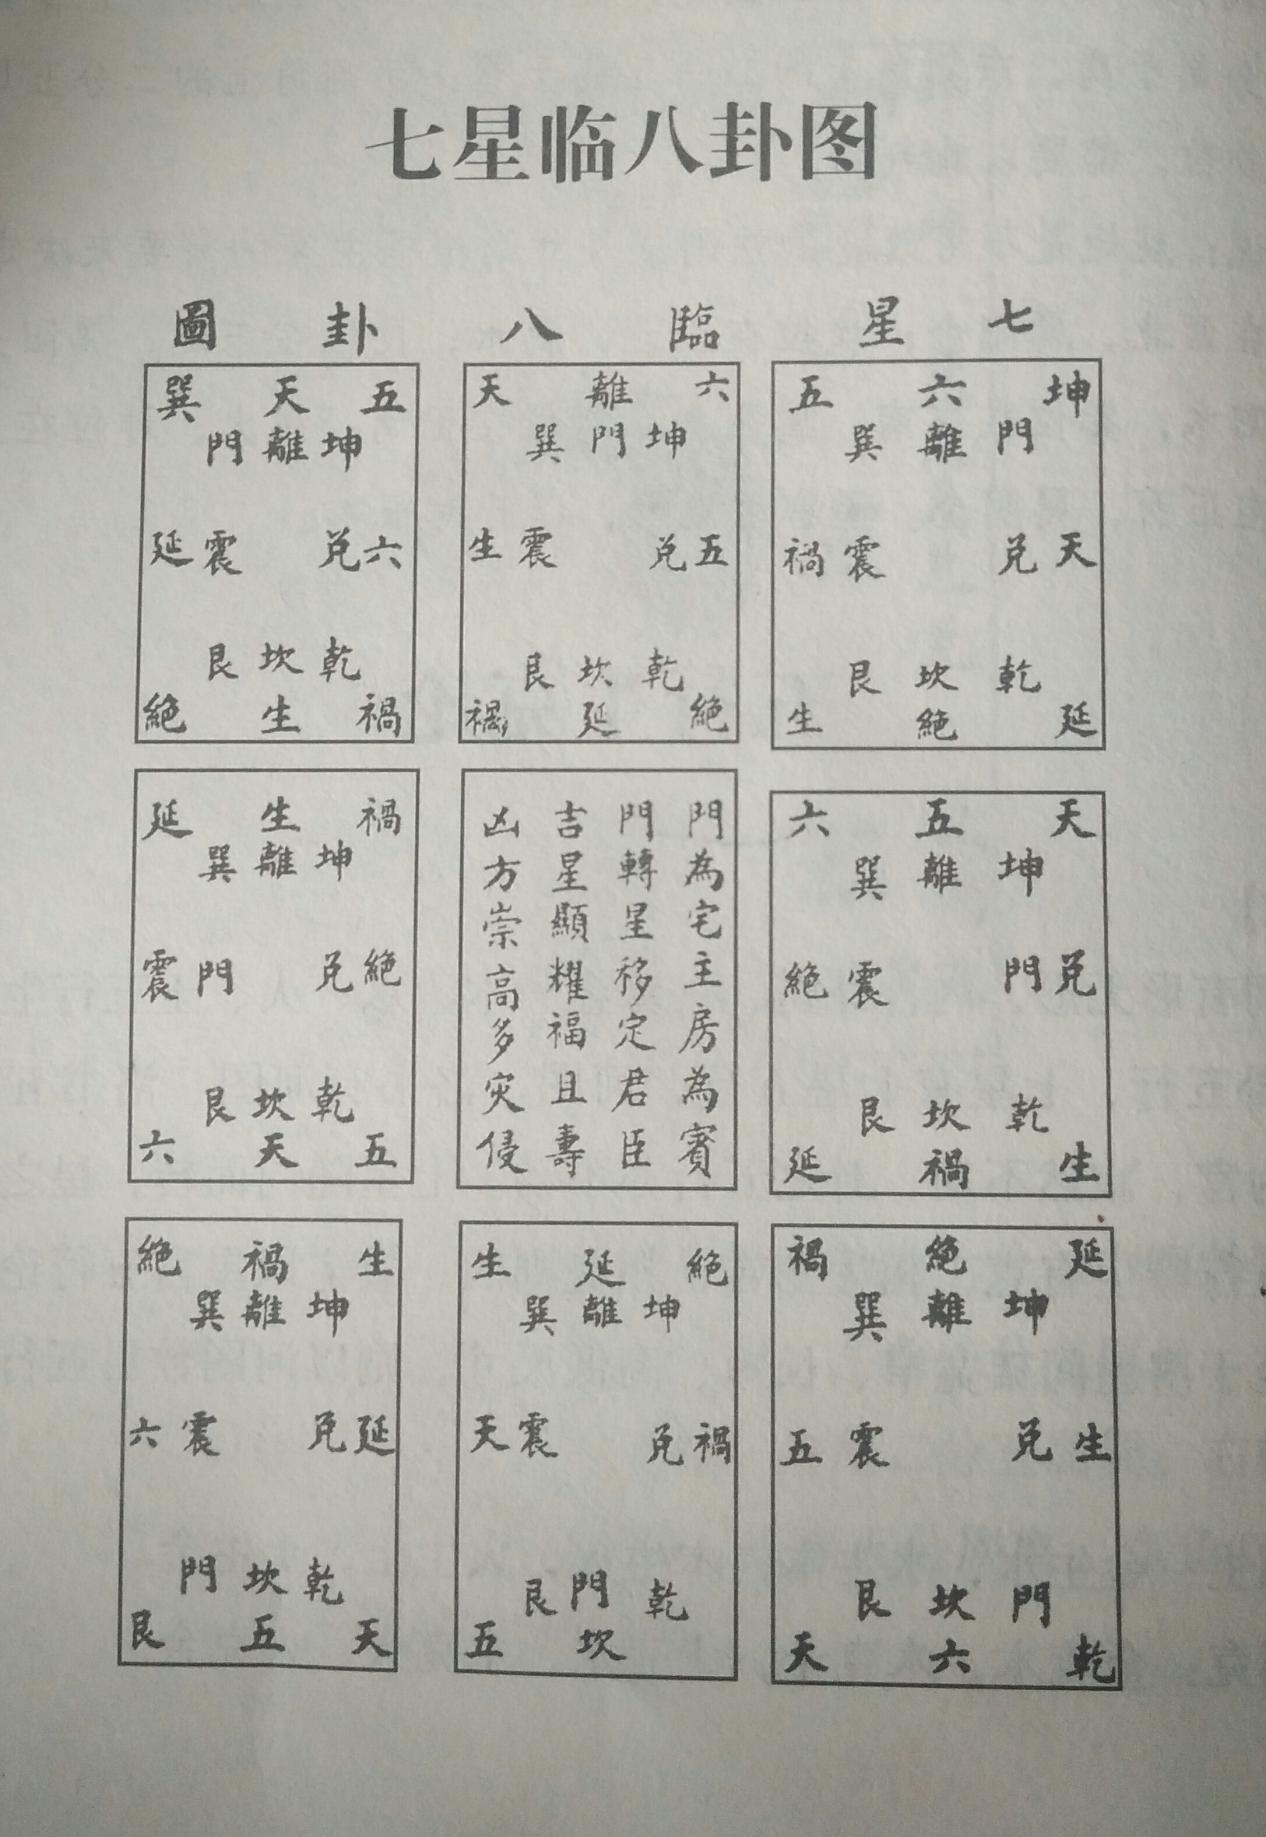 七星临八卦图
七星臨八卦圖
巽 天 五
門 離 坤
延 震 兌 六
艮 坎 乾
絕 生 禍
天 離 六
巽 門 坤
生 震 兌 五
艮 坎 乾
禍 延 絕
五 六 坤
巽 離 門
禍 震 兌 天
艮 坎 乾
生 絕 延
延 生 禍
巽 離 坤
震 門 兌 絕
艮 坎 乾
六 天 五
門為宅主房為賓
門轉星移定君臣
吉星顯耀福且壽
凶方崇高多灾侵
六 五 天
巽 離 坤
絕 震 門 兌
艮 坎 乾
延 禍 生
絕 禍 生
巽 離 坤
六 震 兌 延
門 坎 乾
艮 五 天
生 延 絕
巽 離 坤
天 震 兌 禍
艮 門 乾
五 坎
禍 絕 延
巽 離 坤
五 震 兌 生
艮 坎 門
天 六 乾